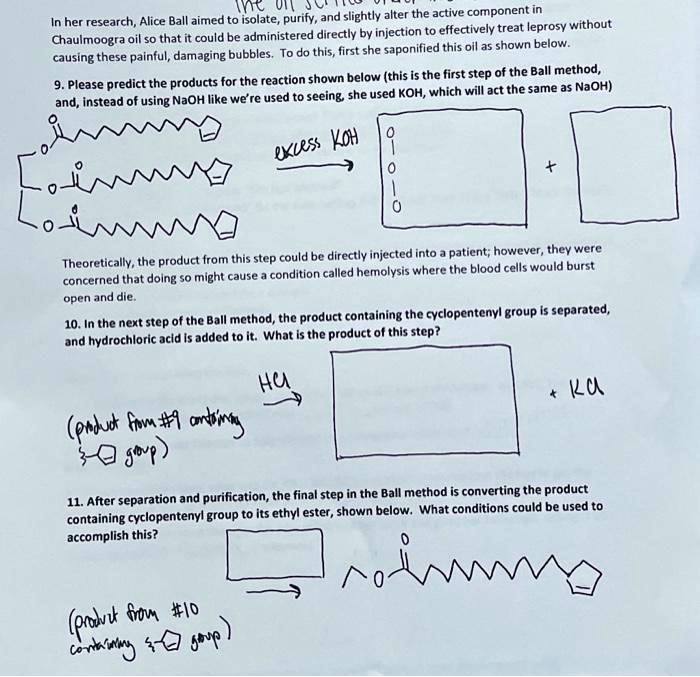 In her research, Alice Ball aimed to isolate, purify, and slightly alter the active component in
Chaulmoogra oil so that it could be administered directly by injection to effectively treat leprosy without
causing these painful, damaging bubbles. To do this, first she saponified this oil as shown below.
9. Please predict the products for the reaction shown below (this is the first step of the Ball method,
and, instead of using NaOH like we're used to seeing, she used KOH, which will act the same as NaOH)
O
O
O
O
O
O
excess KOH
O
O
O
+
Theoretically, the product from this step could be directly injected into a patient; however, they were
concerned that doing so might cause a condition called hemolysis where the blood cells would burst
open and die.
10. In the next step of the Ball method, the product containing the cyclopentenyl group is separated,
and hydrochloric acid is added to it. What is the product of this step?
HCl
+ KCl
(product from #9 containing
group)
11. After separation and purification, the final step in the Ball method is converting the product
containing cyclopentenyl group to its ethyl ester, shown below. What conditions could be used to
accomplish this?
O
O
(product from #10
containing group)